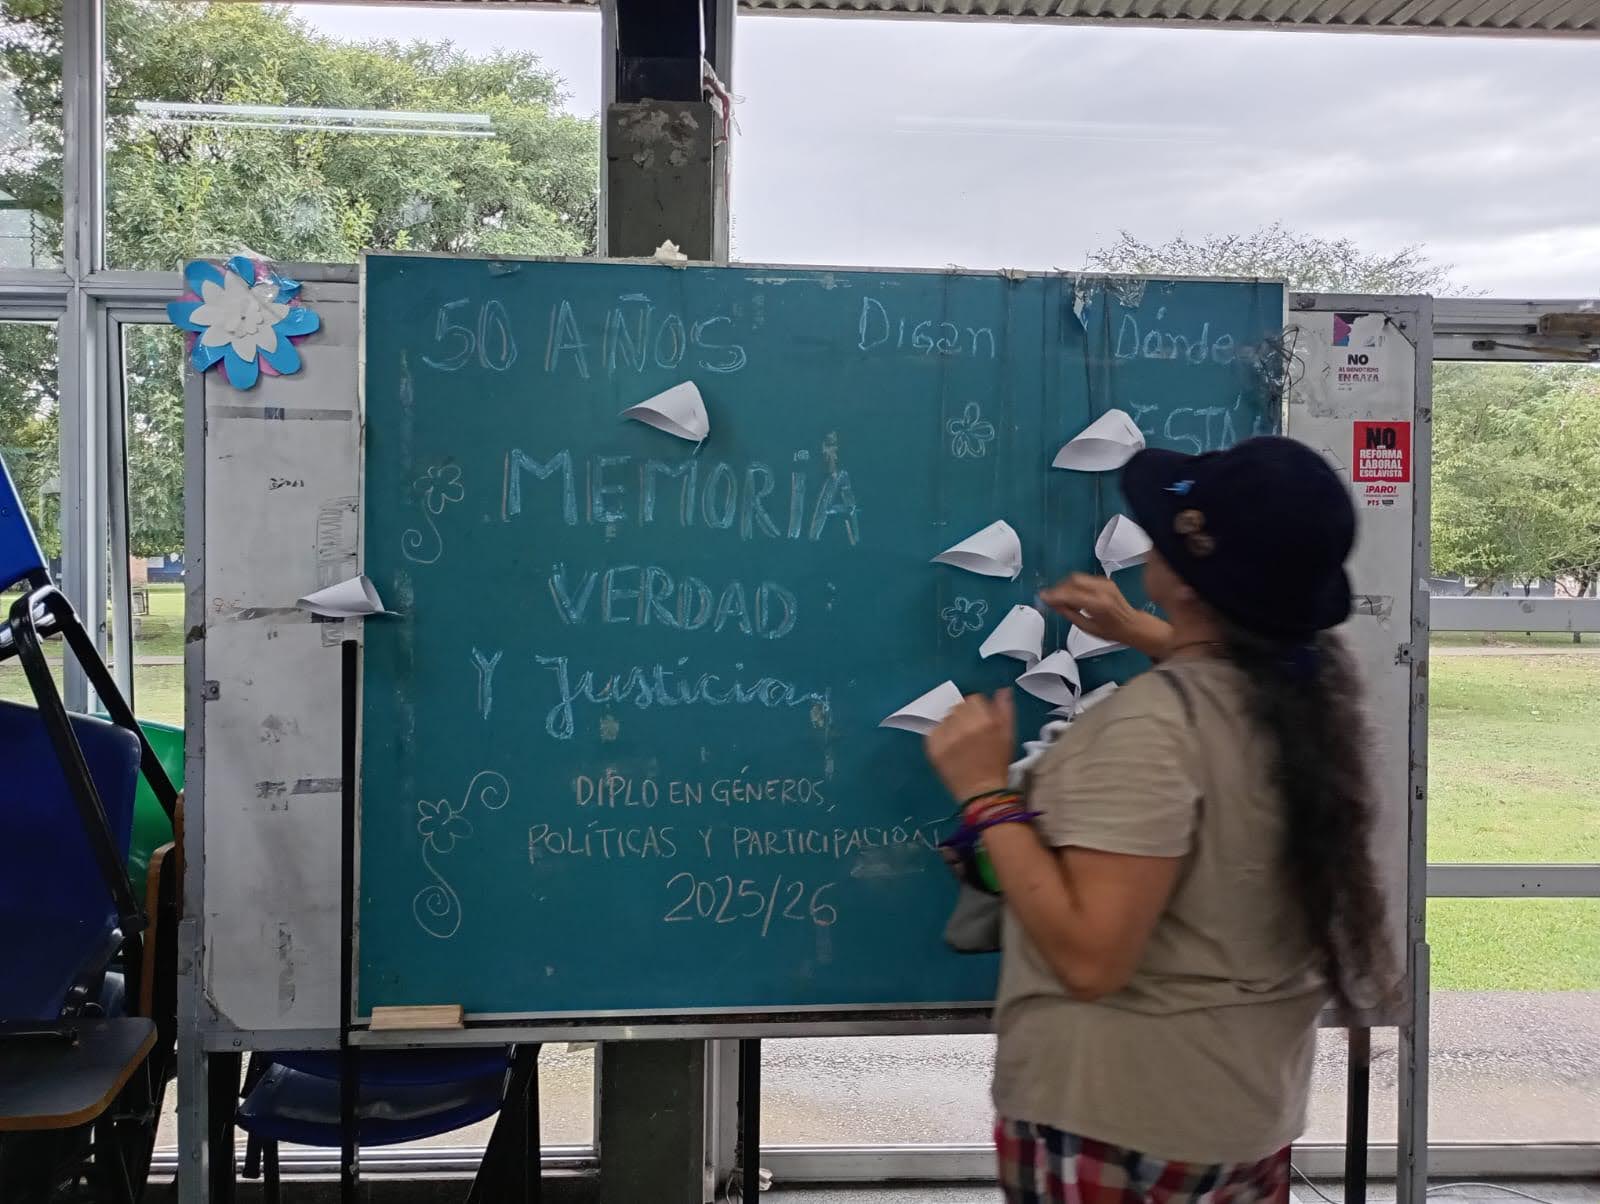 50 AÑOS
Digan Dónde
ESTÁ
MEMORIA
VERDAD
Y Justicia
DIPLO EN GÉNEROS,
POLÍTICAS Y PARTICIPACIÓN
2025/26
NO
AL GENOCIDIO
EN GAZA
NO
REFORMA
LABORAL
ESCLAVISTA
¡PARO!
PTS